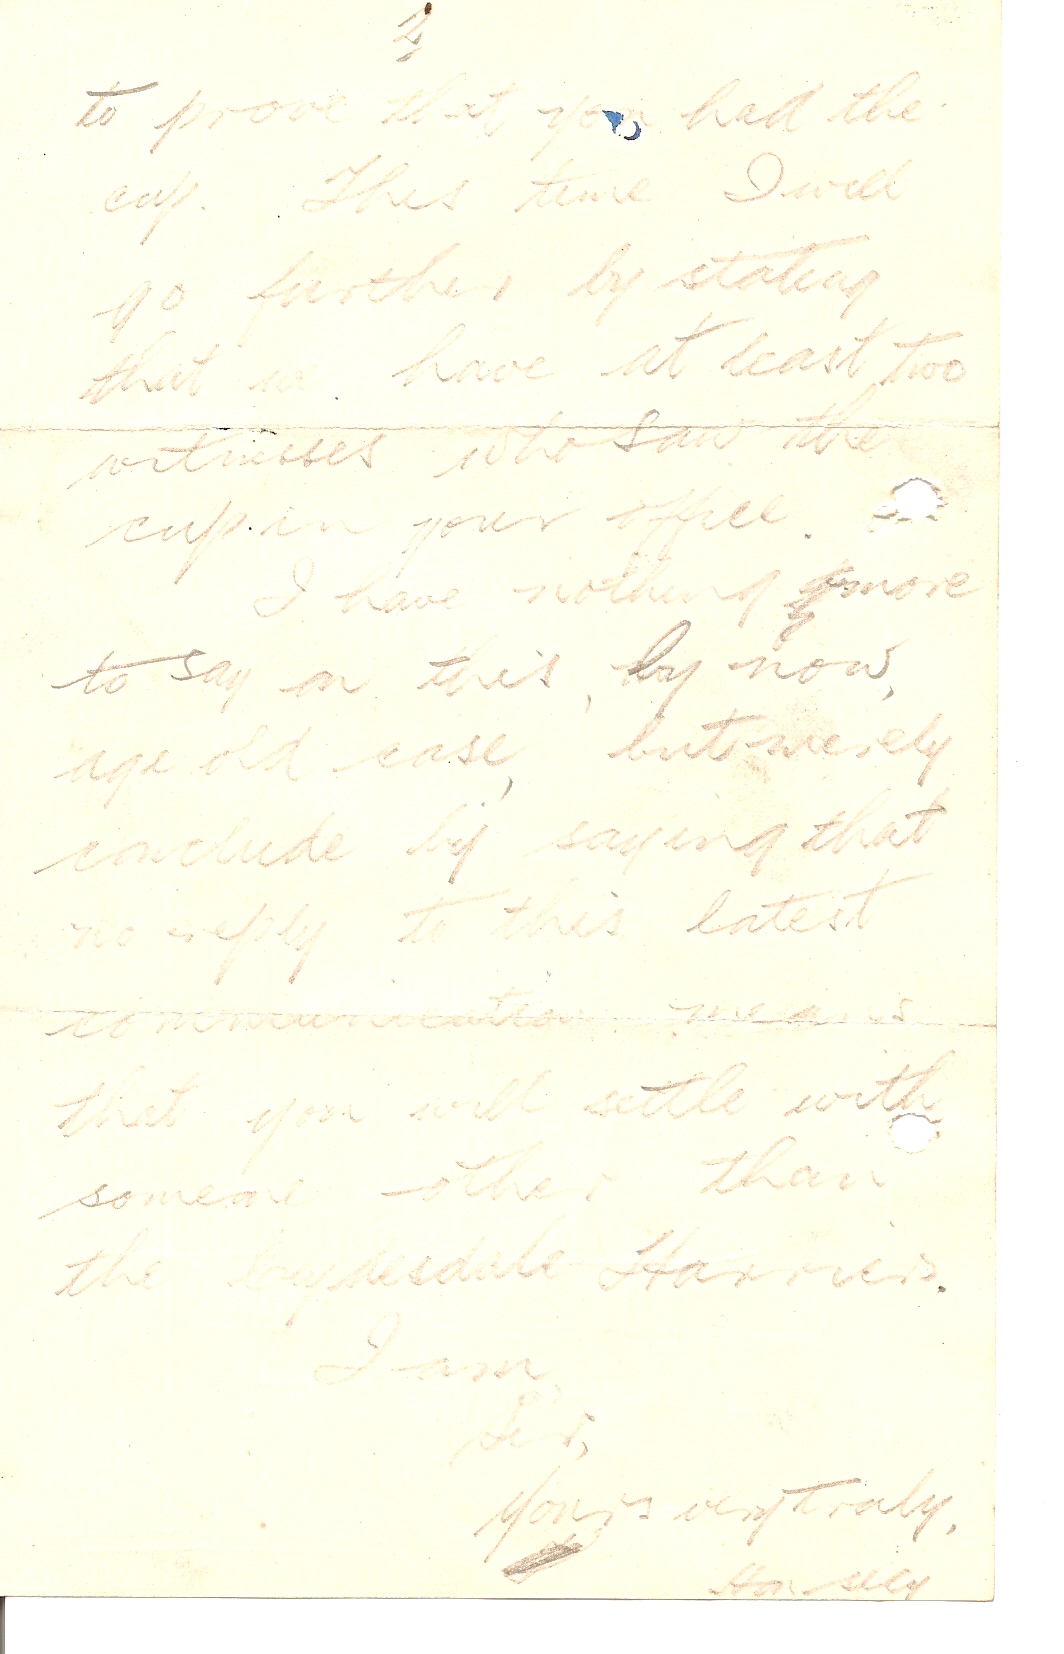 2
to prove that you had the
cup. This time I will
go further by stating
that we have at least two
witnesses who saw the
cup in your office.
I have nothing more
to say on this, by now,
age old case, but merely
conclude by saying that
no reply to this latest
communication means
that you will settle with
someone other than
the Clydesdale Harriers.
I am
Sir,
Yours very truly,
Hon Secy